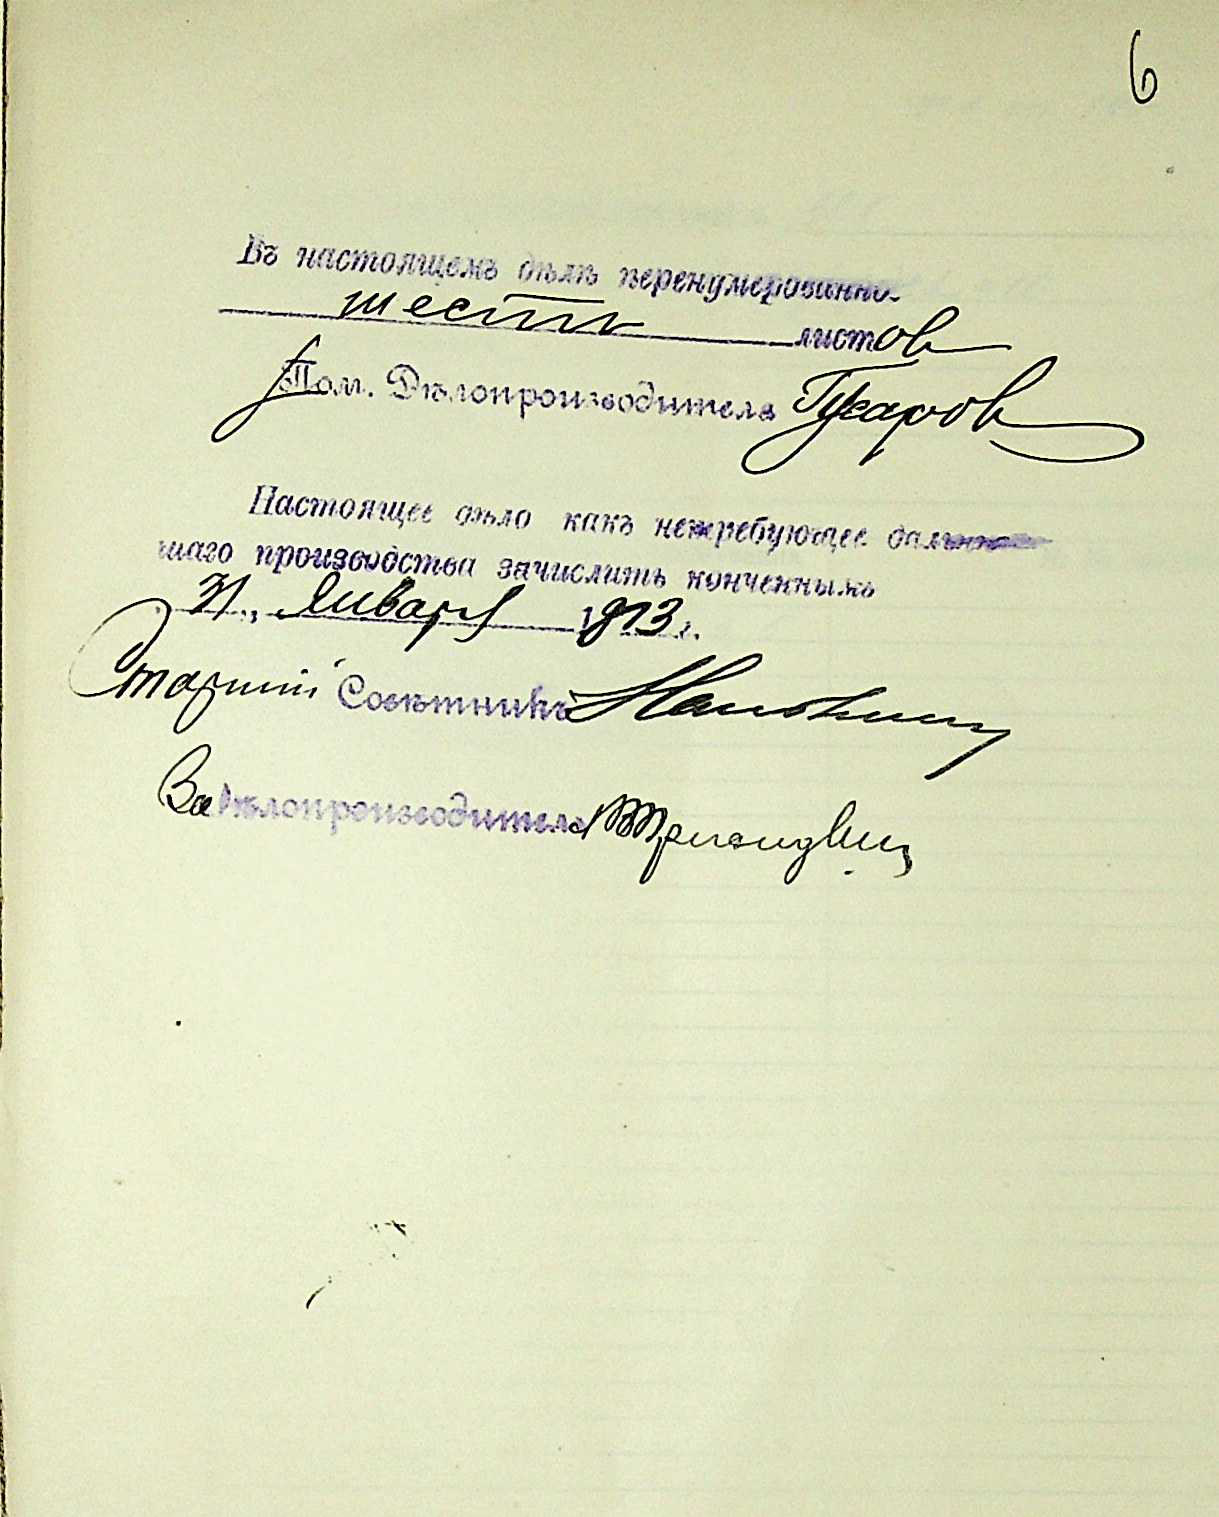 6
Въ настоящемъ дѣлѣ перенумерованно
шесть листов
Пом. Дѣлопроизводителя Гусаров
Настоящее дѣло какъ нетребующее дальнѣй
шаго производства зачислить конченнымъ
31 Января 1913 г.
Старшій Совѣтникъ
За Дѣлопроизводителя